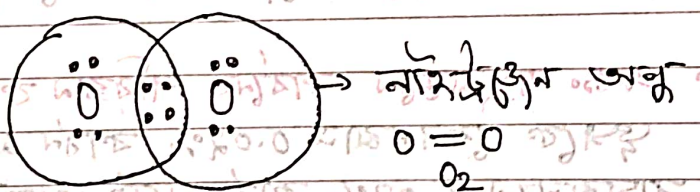 O O → নাইট্রোজেন অনু
O = O
O₂